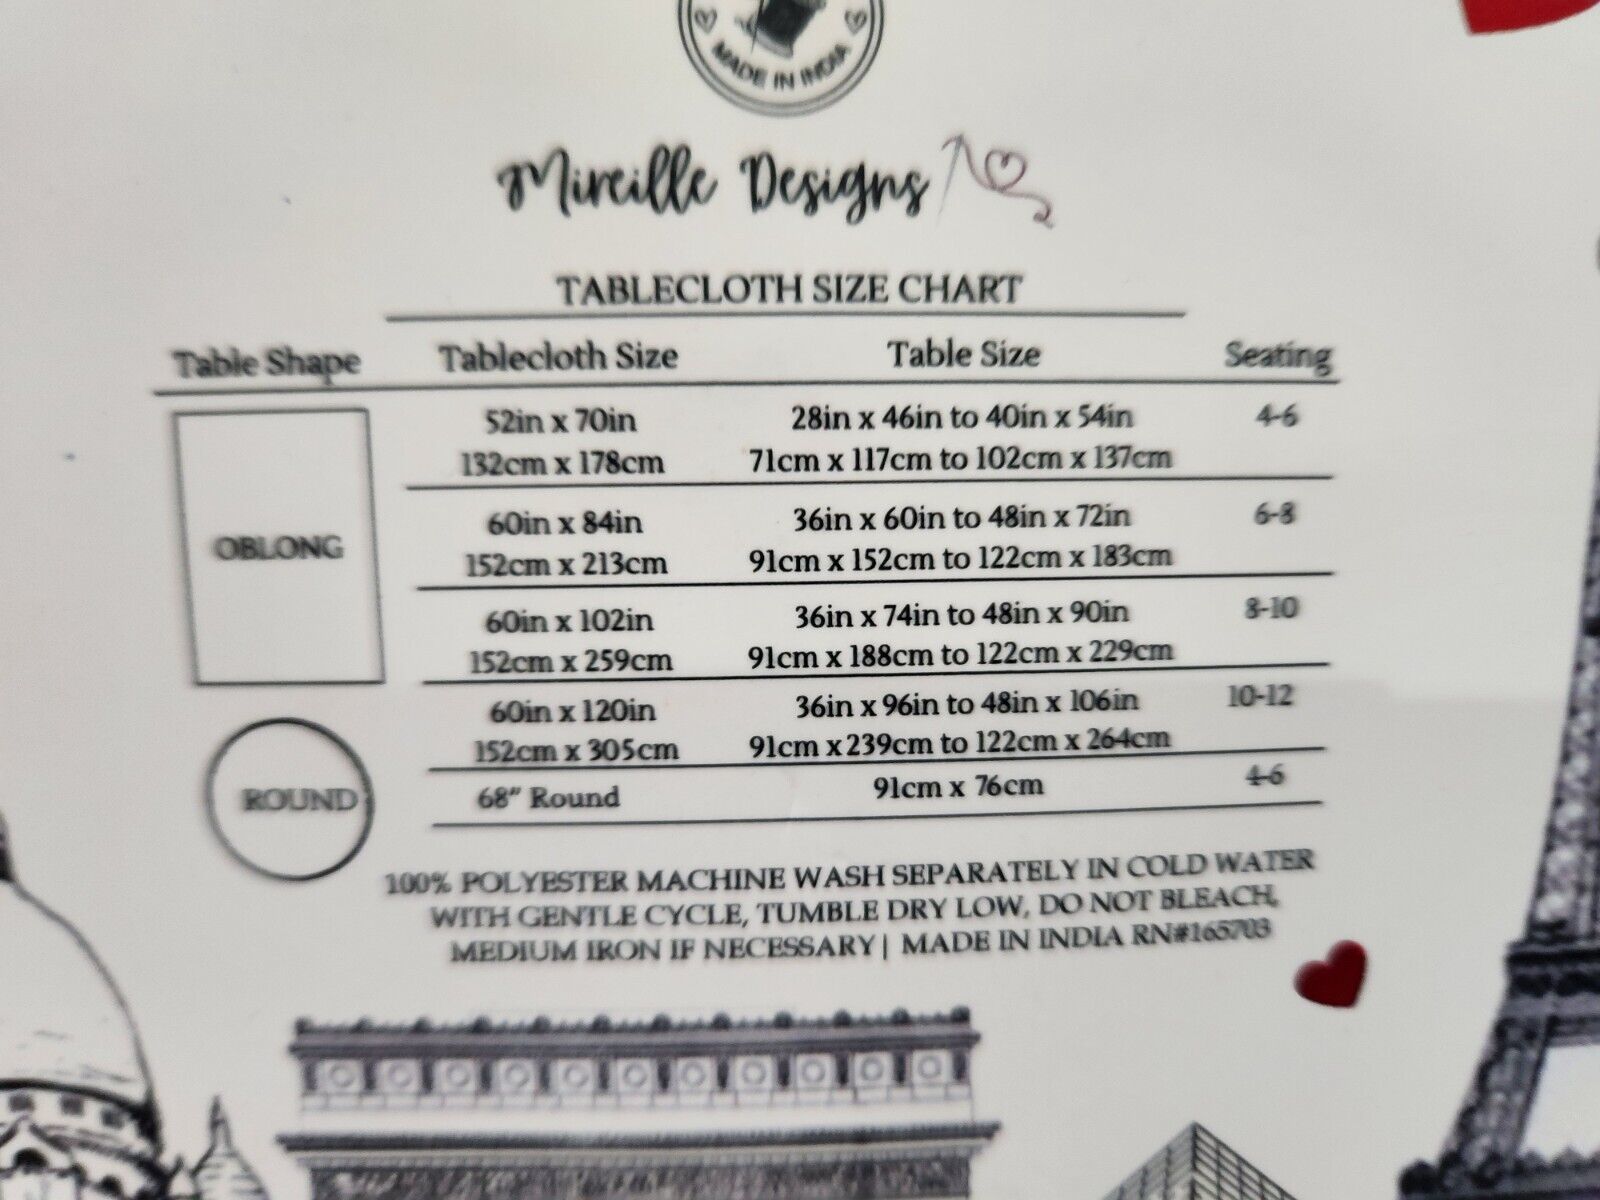 MADE IN INDIA
Mireille Designs
TABLECLOTH SIZE CHART
Table Shape Tablecloth Size Table Size Seating
52in x 70in 28in x 46in to 40in x 54in 4-6
132cm x 178cm 71cm x 117cm to 102cm x 137cm
OBLONG
60in x 84in 36in x 60in to 48in x 72in 6-8
152cm x 213cm 91cm x 152cm to 122cm x 183cm
60in x 102in 36in x 74in to 48in x 90in 8-10
152cm x 259cm 91cm x 188cm to 122cm x 229cm
60in x 120in 36in x 96in to 48in x 106in 10-12
152cm x 305cm 91cm x 239cm to 122cm x 264cm
ROUND 68" Round 91cm x 76cm 4-6
100% POLYESTER MACHINE WASH SEPARATELY IN COLD WATER
WITH GENTLE CYCLE, TUMBLE DRY LOW, DO NOT BLEACH,
MEDIUM IRON IF NECESSARY | MADE IN INDIA RN#165703